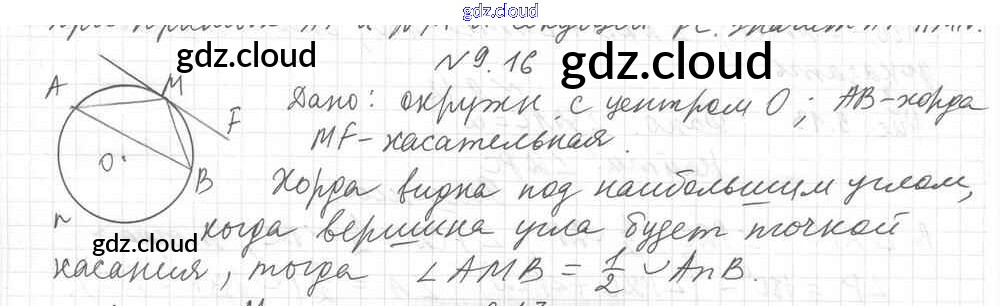 gdz.cloud
gdz.cloud
№9.16
gdz.cloud
A M
Дано: окружн. с центром O; AB-хорда
F
MF-касательная.
O
B
Хорда видна под наибольшим углом,
n
когда вершина угла будет точкой
gdz.cloud
касания, тогда ∠AMB = 1/2 ◡AnB.
gdz.cloud